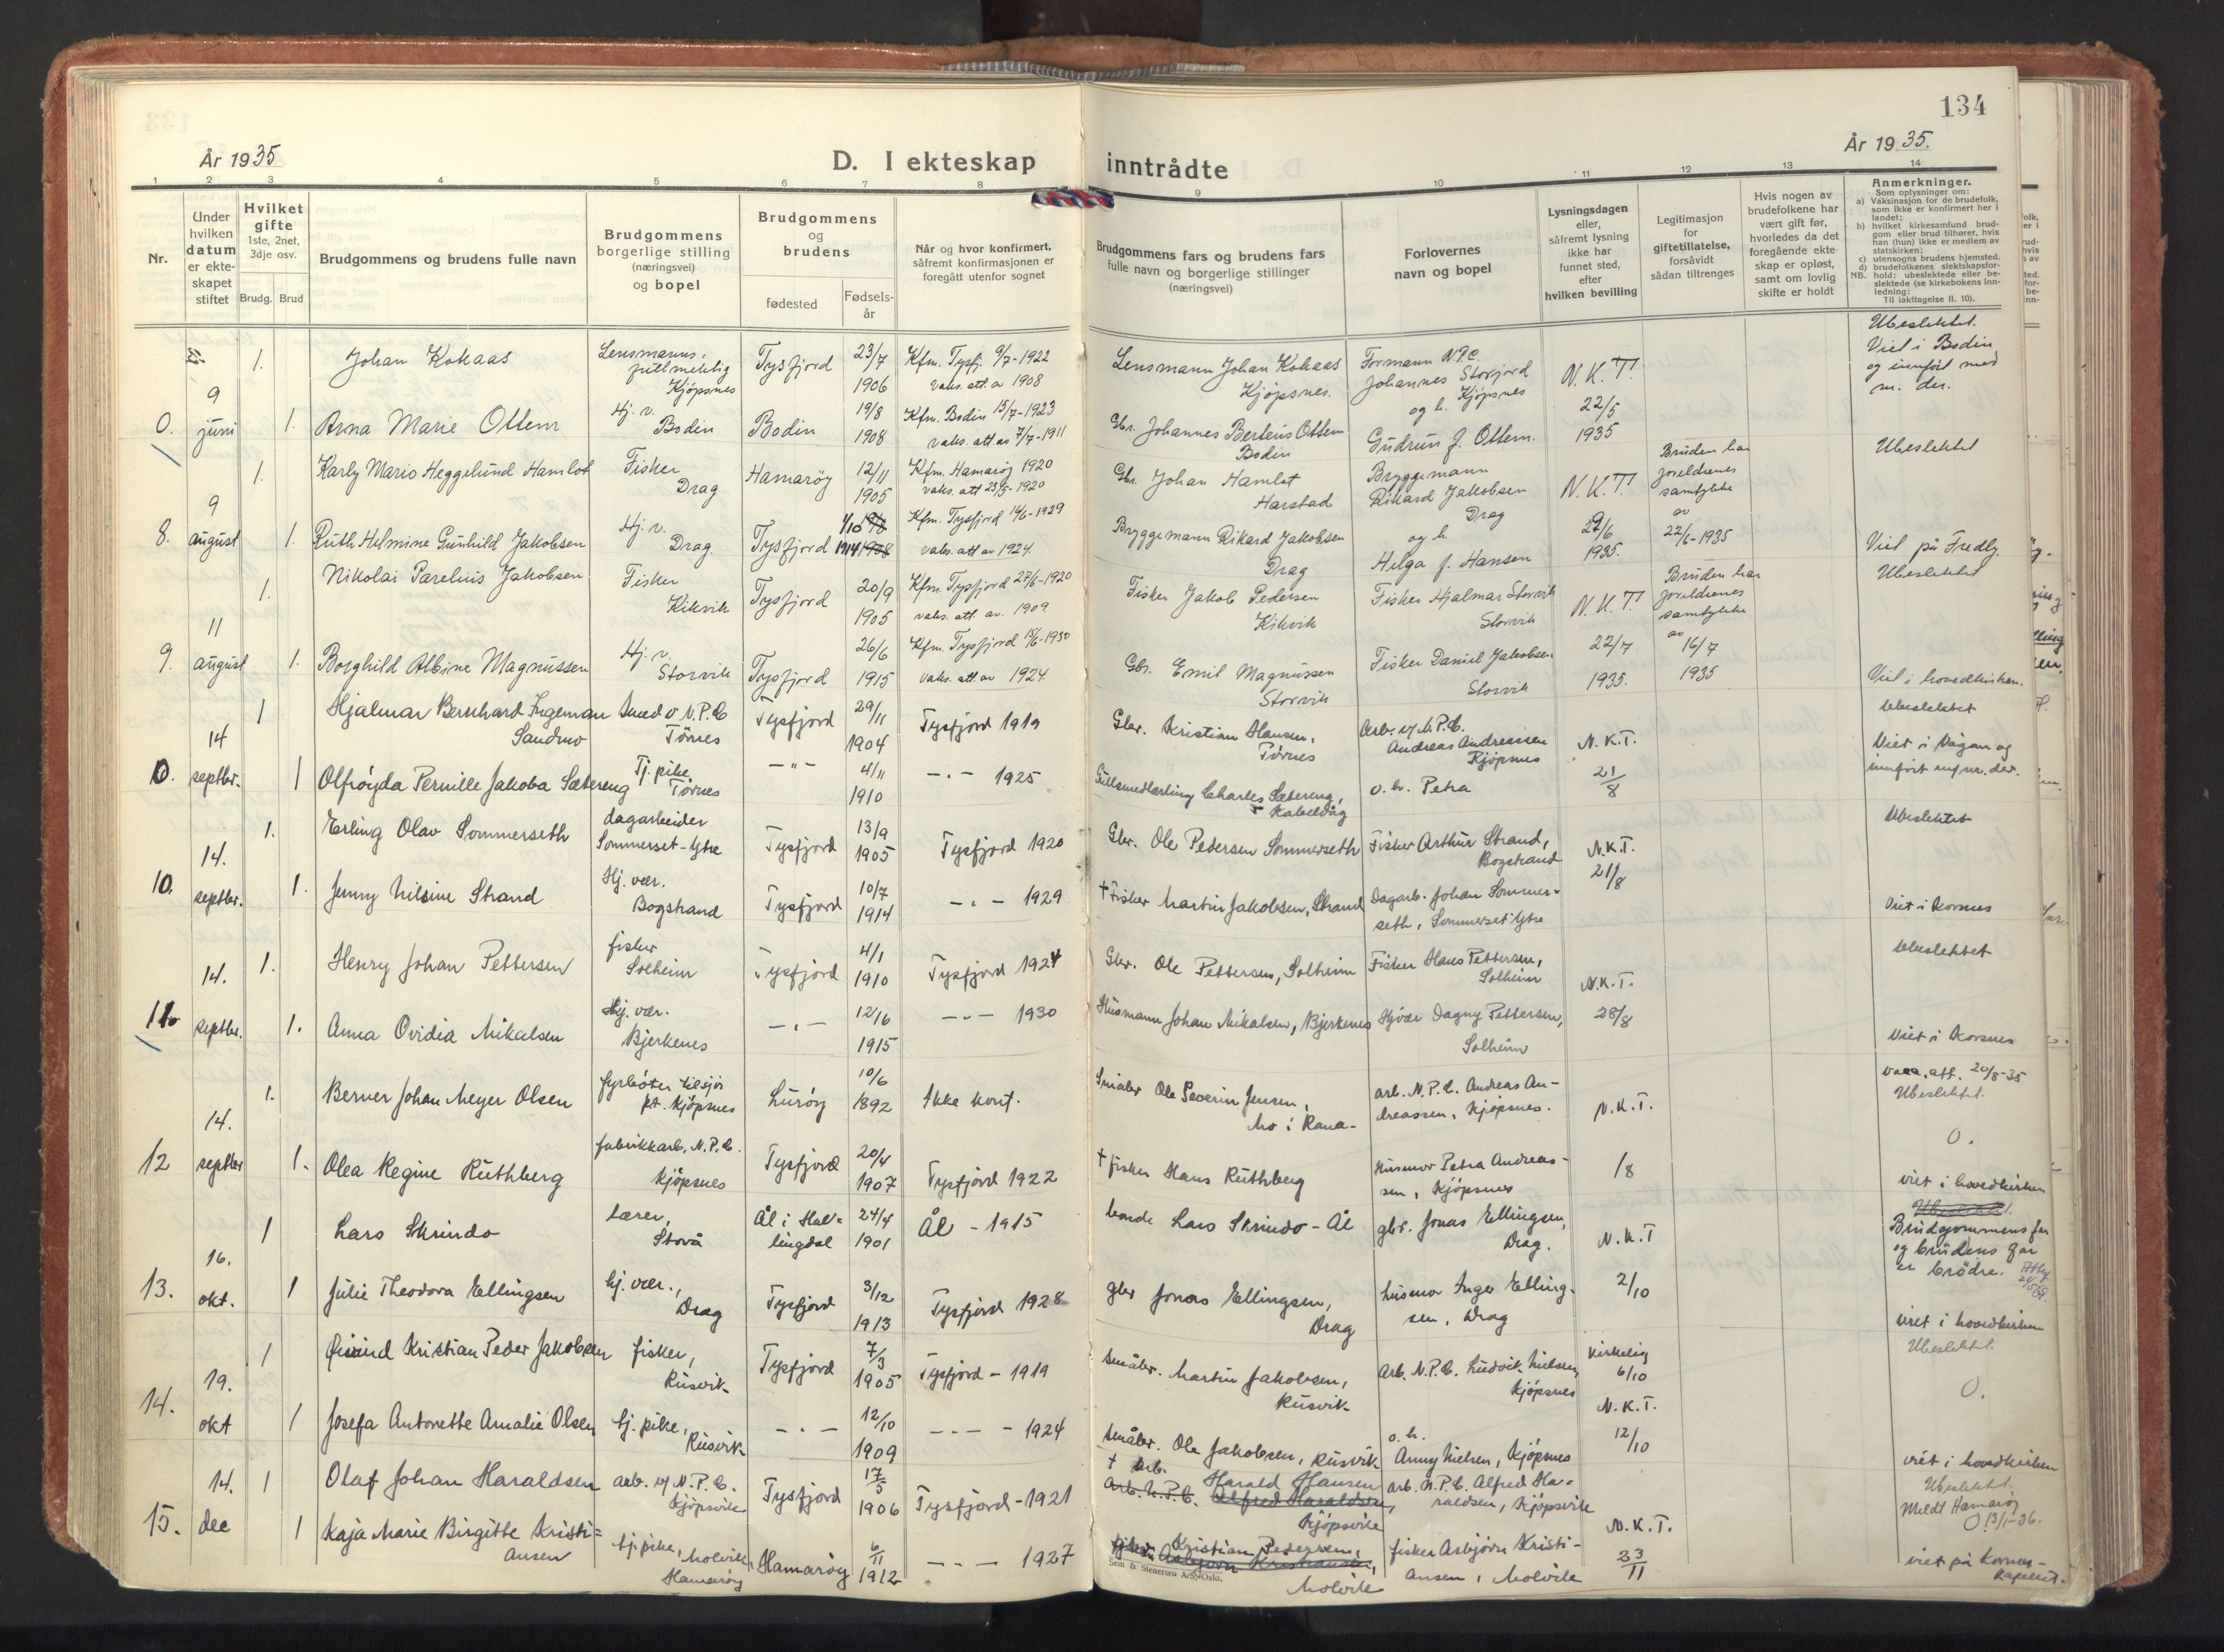 134
År 1935
D. I ekteskap
inntrådte
År 1935.
1 2 3 4 5 6 7 8 9 10 11 12 13 14
Nr.
Under
hvilken
datum
er ekte-
skapet
stiftet
Hvilket
gifte
1ste, 2net,
3dje osv.
Brudg. Brud
Brudgommens og brudens fulle navn
Brudgommens
borgerlige stilling
(næringsvei)
og bopel
Brudgommens
og
brudens
fødested
Fødsels-
år
Når og hvor konfirmert,
såfremt konfirmasjonen er
foregått utenfor sognet
Brudgommens fars og brudens fars
fulle navn og borgerlige stillinger
(næringsvei)
Forlovernes
navn og bopel
Lysningsdagen
eller,
såfremt lysning
ikke har
funnet sted,
efter
hvilken bevilling
Legitimasjon
for
giftetillatelse,
forsåvidt
sådan tiltrenges
Hvis nogen av
brudefolkene har
vært gift før,
hvorledes da det
foregående ekte-
skap er opløst,
samt om lovlig
skifte er holdt
Anmerkninger.
Som oplysninger om:
a) Vaksinasjon for de brudefolk,
som ikke er konfirmert her i
landet;
b) hvilket kirkesamfund brud-
gom eller brud tilhører, hvis
han (hun) ikke er medlem av
statskirken;
c) utensogns brudens hjemsted.
d) brudefolkenes slektskapsfor-
NB. hold: ubeslektede eller be-
slektede (se kirkebokens inn-
ledning:
Til iakttagelse II. 10).
9
juni
0.
1. Johan Kokaas
Lensmanns-
fullmektig
Kjøpsnes
Tysfjord
23/7
1906
Kfm. Tysfj. 9/7-1922
vaks. att. av 1908
Lensmann Johan Kokaas
Kjöpsnes.
Formann N.P.C.
Johannes Storjord
og h. Kjöpsnes
N.K.T.
22/5
1935
Ubeslektet.
Viet i Bodin
og innført med
nr. der.
1. Arna Marie Ottem
Hj. v.
Bodin
Bodin
19/8
1908
Kfm. Bodin 15/7-1923
vaks. att av 7/7-1911
Gbr. Johannes Berteus Ottem
Bodin
Gudrun J. Ottem.
8.
9
august
1. Karly Mario Heggelund Hamlot
Fisker
Drag
Hamarøy
12/11
1905
Kfm. Hamarøy 1920
vaks. att 23/5-1920
Gbr. Johan Hamlot
Harstad
Bryggemann
Rikard Jakobsen
Drag
og h.
N.K.T.
27/6
1935.
Bruden har
foreldrenes
samtykke
av
22/6-1935
Ubeslektet
1. Ruth Helmine Gunhild Jakobsen
Hj. v.
Drag.
Tysfjord
1/10 19/8
1914 1908
Kfm. Tysfjord 14/6-1929
vaks. att av 1924.
Bryggemann Rikard Jakobsen
Drag
Helga J. Hansen
Viet på Fredly.
9.
11
august
1. Nikolai Parelius Jakobsen
Fisker
Kikvik
Tysfjord
20/9
1905
Kfm. Tysfjord 27/6-1920
vaks. att. av. 1909
Fisker Jakob Pedersen
Kikvik
Fisker Hjalmar Storvik
Storvik
N.K.T.
22/7
1935.
Bruden har
foreldrenes
samtykke
av
16/7
1935
Ubeslektet
1. Borghild Albine Magnussen
Hj. v.
Storvik
Tysfjord
26/6
1915
Kfm. Tysfjord 15/6-1930
vaks. att. av 1924
Gbr. Emil Magnussen
Storvik
Fisker Daniel Jakobsen
Storvik
Viet i hovedkirken.
0.
14
septbr.
1 Hjalmar Bernhard Ingeman
Sandmo
Smed v N.P.C
Tørnes
Tysfjord
29/11
1904
Tysfjord 1919
Gbr. Kristian Hansen,
Tørnes
Arb. v/ N.P.C.
Andreas Andreassen
Kjöpsnes
N.K.T.
21/8
Ubeslektet
1 Olfrøyda Pernille Jakoba Sætereng
Tj. pike
Tørnes
— " —
4/11
1910
— " — 1925
Charles Sætereng,
Kabelvåg
o. hr. Petra
Viet i Vågan og
innført m/ nr. der.
10.
14.
septbr.
1. Erling Olav Sommerseth
dagarbeider
Sommerset-Ytre
Tysfjord
13/9
1905
Tysfjord 1920
Gbr. Ole Pedersen Sommerseth
Fisker Arthur Strand,
Bogstrand
N.K.T.
21/8
Ubeslektet
1. Jenny Nilsine Strand
Hj. vær.
Bogstrand
Tysfjord
10/7
1914
— " — 1929
† Fisker Martin Jakobsen, Strand
Dagarb. Johan Sommer-
seth, Sommerset Ytre
Viet i Korsnes
11.
14.
septbr.
1. Henry Johan Pettersen
fisker
Solheim
Tysfjord
4/1
1910
Tysfjord 1924
Gbr. Ole Pettersen, Solheim
Fisker Hans Pettersen,
Solheim
N.K.T.
28/8
Ubeslektet
1. Anna Ovidia Mikalsen
Hj. vær.
Bjerkenes
— " —
12/6
1915
— " — 1930
Husmann Johan Mikalsen, Bjerkenes
Hjvær Dagny Pettersen,
Solheim
Viet i Korsnes
12
14.
septbr
1. Berner Johan Meyer Olsen
fyrbøter tilsjøs
pt. Kjøpsnes
Lurøy
10/6
1892
Ikke konf.
Småbr Ole Severin Jensen,
Mo i Rana-
arb. N.P.C. Andreas An-
dreassen, Kjöpsnes.
N.K.T.
/8
vacc. att. 20/8-35
Ubeslektet.
0.
1. Olea Regine Ruthberg
fabrikkarb. N.P.C.
Kjöpsnes
Tysfjord
20/4
1907
Tysfjord 1922
† fisker Hans Ruthberg
Husmor Petra Andreas-
sen, Kjöpsnes
viet i hovedkirken
13.
16.
okt.
1 Lars Skrindo
lærer,
Storå
Ål i Hal-
lingdal
24/4
1901
ÅL - 1915
bonde Lars Skrindo - Ål
gbr. Jonas Ellingsen,
Drag.
N.K.T
2/10
Ubeslektet.
Brudgommens far
og brudens far
er brödre.
1 Julie Theodora Ellingsen
hj. vær.,
Drag
Tysfjord
3/12
1913
Tysfjord 1928
gbr Jonas Ellingsen,
Drag
husmor Inger Elling-
sen, Drag
viet i hovedkirken
14.
19.
okt
1 Øivind Kristian Peder Jakobsen
fisker,
Rusvik
Tysfjord
7/3
1905
Tysfjord - 1919
Småbr. Martin Jakobsen,
Rusvik
Arb. N.P.C. Ludvik Nielsen,
Kjöpsnes
Kirkelig
6/10
N.K.T.
12/10
Ubeslektet.
0.
1 Josefa Antonette Amalie Olsen
tj. pike,
Rusvik
— " —
12/10
1909
— " — 1924
Småbr. Ole Jakobsen, Rusvik
o. h.
Anny Nielsen, Kjöpsnes
viet i hovedkirken
15.
14.
dec
1 Olaf Johan Haraldsen
arb. v/ N.P.C.
Kjöpsvik
Tysfjord
17/5
1906
Tysfjord - 1921
† Arb. Harald Hansen
Arb. N.P.C. Alfred Haraldsen,
Kjöpsvik
arb. N.P.C. Alfred Ha-
raldsen, Kjöpsvik
N.K.T.
23/11
Ubeslektet.
Meldt Hamarøy
0 13/1-36.
1 Kaja Marie Birgitte Kristi-
ansen
tj. pike, Molvik,
Hamarøy
Hamarøy
6/11
1912
— " — 1927
Kristian Pedersen,
Asbjørn Kristiansen,
Molvik
fisker Asbjørn Kristi-
ansen, Molvik
viet på Korsnes-
kapell.
Sem & Stenersen A/S, Oslo.